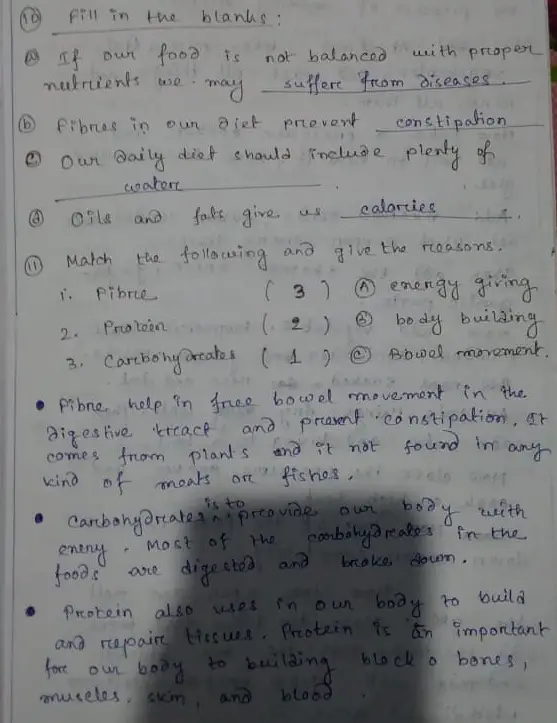 ⑩ Fill in the blanks:
ⓐ If our food is not balanced with proper
nutrients we may suffer from diseases.
ⓑ Fibres in our diet prevent constipation
ⓒ Our daily diet should include plenty of
water.
ⓓ Oils and fats give us calories.
⑪ Match the following and give the reasons.
1. Fibre ( 3 ) Ⓐ energy giving
2. Protein ( 2 ) Ⓑ body building
3. Carbohydrates ( 1 ) Ⓒ Bowel movement.
• Fibre help in free bowel movement in the
digestive tract and prevent constipation. It
comes from plants and it not found in any
kind of meats or fishes.
• Carbohydrates is to provide our body with
enery. Most of the carbohydrates in the
foods are digested and broke down.
• Protein also uses in our body to build
and repair tissues. Protein is an important
for our body to building block o bones,
muscles, skin, and blood.